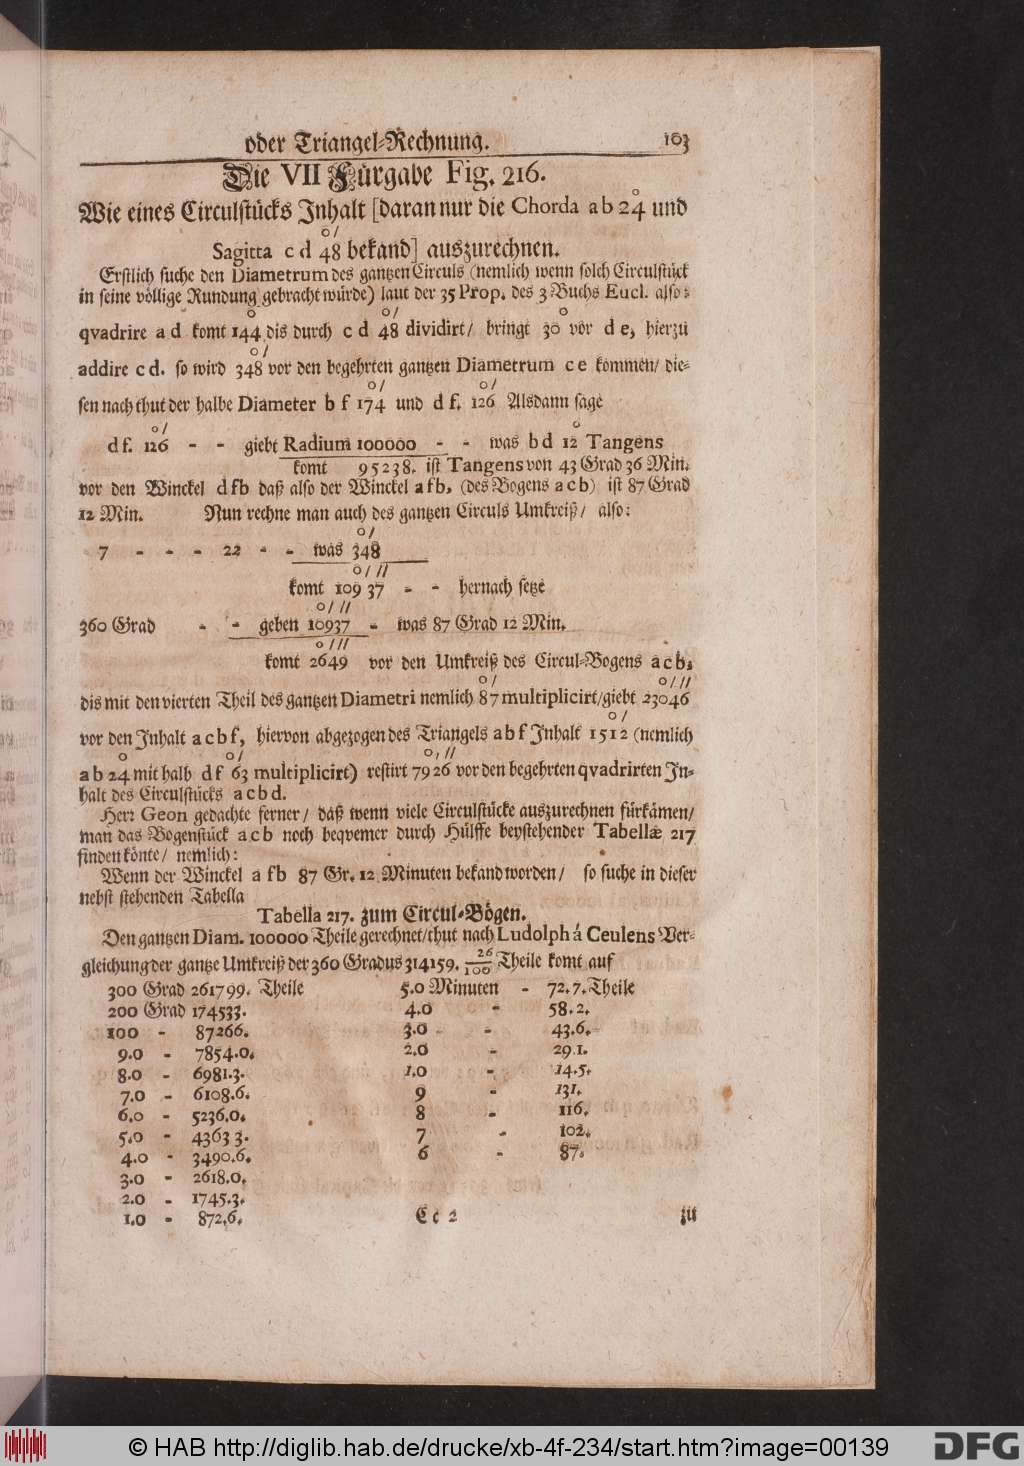 oder Triangel-Rechnung. 103
Die VII Fürgabe Fig. 216.
Wie eines Circulstücks Inhalt [daran nur die Chorda ab 24 und
Sagitta c d 48 bekand] auszurechnen.
Erstlich suche den Diametrum des gantzen Circuls (nemlich wenn solch Circulstück
in seine völlige Rundung gebracht würde) laut der 35 Prop. des 3 Buchs Eucl. also:
o o / o
qvadrire a d komt 144 dis durch c d 48 dividirt/ bringt 30 vor d e, hierzu
o /
addire c d. so wird 348 vor den begehrten gantzen Diametrum c e kommen/ die-
o / o /
sen nach thut der halbe Diameter b f 174 und d f. 126 Alsdann sage
o / o
d f. 126 - - giebt Radium 100000 - - was b d 12 Tangens
komt 95238. ist Tangens von 43 Grad 36 Min.
vor den Winckel d f b daß also der Winckel a f b, (des Bogens a c b) ist 87 Grad
12 Min. Nun rechne man auch des gantzen Circuls Umkreiß/ also:
o /
7 - - - 22 - - was 348
o / //
komt 109 37 - - hernach setze
o / //
360 Grad - - geben 10937 - was 87 Grad 12 Min.
o / //
komt 2649 vor den Umkreiß des Circul-Bogens a c b,
o / o / //
dis mit den vierten Theil des gantzen Diametri nemlich 87 multiplicirt/giebt 23046
o /
vor den Inhalt a c b f, hiervon abgezogen des Triangels a b f Inhalt 1512 (nemlich
o o / o, //
a b 24 mit halb d f 63 multiplicirt) restirt 7926 vor den begehrten qvadrirten In-
halt des Circulstücks a c b d.
Herr Geon gedachte ferner/ daß wenn viele Circulstücke auszurechnen fürkämen/
man das Bogenstück a c b noch beqvemer durch Hülffe beystehender Tabellæ 217
finden könte/ nemlich:
Wenn der Winckel a f b 87 Gr. 12 Minuten bekand worden/ so suche in dieser
nebst stehenden Tabella
Tabella 217. zum Circul-Bögen.
Den gantzen Diam. 100000 Theile gerechnet/thut nach Ludolph á Ceulens Ver-
gleichung der gantze Umkreiß der 360 Gradus 314159. 26/100 Theile komt auf
300 Grad 261799. Theile 5.0 Minuten - 72.7. Theile
200 Grad 174533. 4.0 - 58.2.
100 - 87266. 3.0 - 43.6.
9.0 - 7854.0. 2.0 - 29 1.
8.0 - 6981.3. 1.0 - 14.5.
7.0 - 6108.6. 9 - 131.
6.0 - 5236.0. 8 - 116.
5.0 - 4363 3. 7 - 102.
4.0 - 3490.6. 6 - 87.
3.0 - 2618.0.
2.0 - 1745.3.
1.0 - 872.6.
C c 2 zu
© HAB http://diglib.hab.de/drucke/xb-4f-234/start.htm?image=00139 DFG